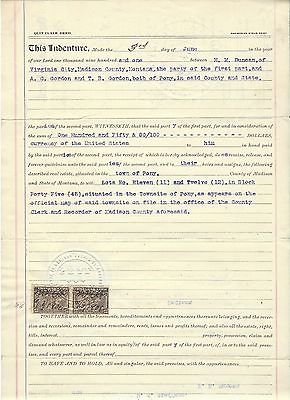 QUIT CLAIM DEED.
This Indenture, Made the 3rd day of June in the year
of our Lord one thousand nine hundred and one between N. M. Duncan, of
Virginia City, Madison County, Montana, the party of the first part, and
A. G. Gordon and T. B. Gordon, both of Pony, in said County and State,
of the second part, WITNESSETH, That the said party of the first part, for and in consideration of the
sum of One Hundred and Fifty & 00/100 DOLLARS,
currency of the United States to him
in hand paid by the said parties of the second part, the receipt of which is hereby acknowledged, do es remise, release, and
forever quitclaim unto the said parties of the second part, and to their heirs and assigns, the following
described real estate, situated in the town of Pony, County of Madison
and State of Montana, to wit: Lots No. Eleven (11) and Twelve (12), in Block
Forty Five (45), situated in the Townsite of Pony, as appears on the
official map of said townsite on file in the office of the County
Clerk and Recorder of Madison County aforesaid.
TOGETHER with all the tenements, hereditaments and appurtenances thereunto belonging, and the rever-
sion and reversions, remainder and remainders, rents, issues and profits thereof; and also all the estate, right,
title, interest, property, possession, claim and
demand whatsoever, as well in law as in equity of the said party of the first part, of, in or to the said premises,
and every part and parcel thereof.
TO HAVE AND TO HOLD, All and singular, the said premises, with the appurtenances